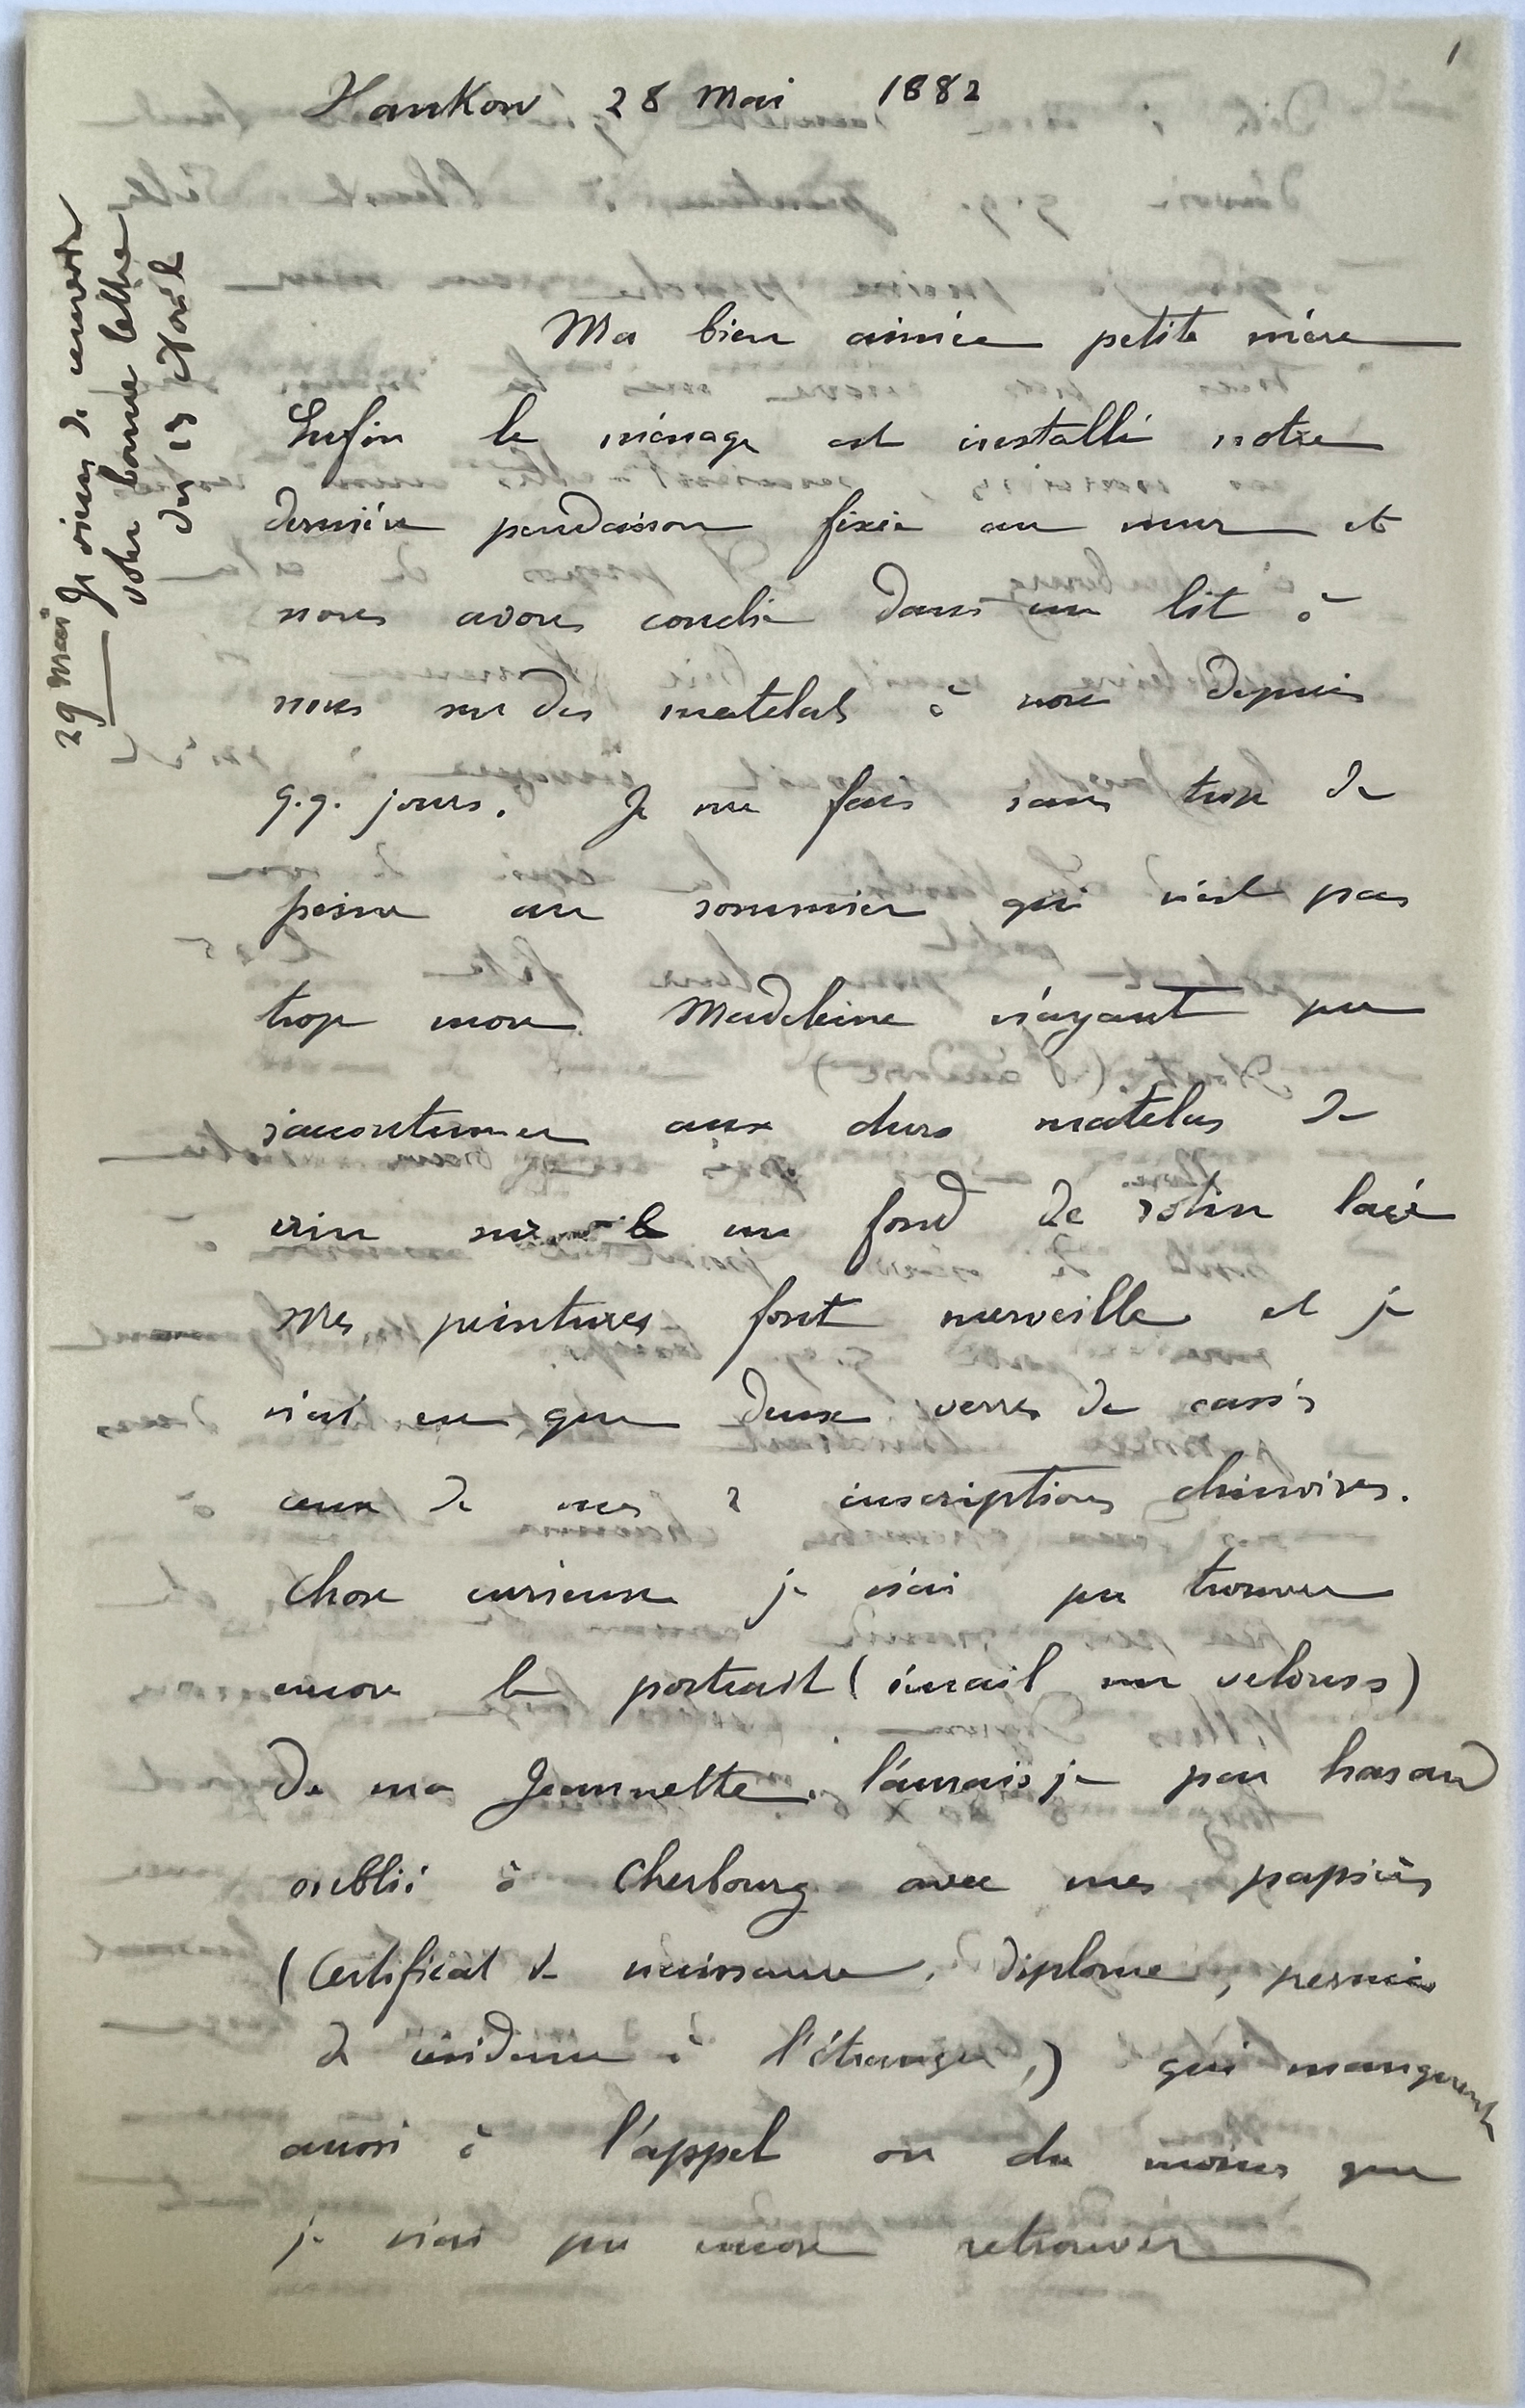 1
Hankow 28 Mai 1882
29 Mai Je viens de recevoir
votre bonne lettre
du 13 Avril
Ma bien aimée petite mère
Enfin le ménage est installé notre
dernière pendaison fixée au mur et
nous avons couché dans un lit à
nous sur des matelas à nous depuis
q.q. jours. Je me fais sans trop de
peine au sommier qui n'est pas
trop mou Madeleine n'ayant pu
s'accoutumer aux durs matelas de
crin sur un fond de rotin lacé
Mes peintures font merveille et je
n'ai eu que deux verres de cassés
ceux de mes 2 inscriptions chinoises.
Chose curieuse je n'ai pu trouver
encore le portrait (émail sur velours)
de ma Jeannette. l'aurais je par hasard
oublié à Cherbourg avec mes papiers
(Certificat de naissance, diplome, permis
de résidence à l'étranger,) qui manquent
aussi à l'appel ou du moins que
je n'ai pu encore retrouver